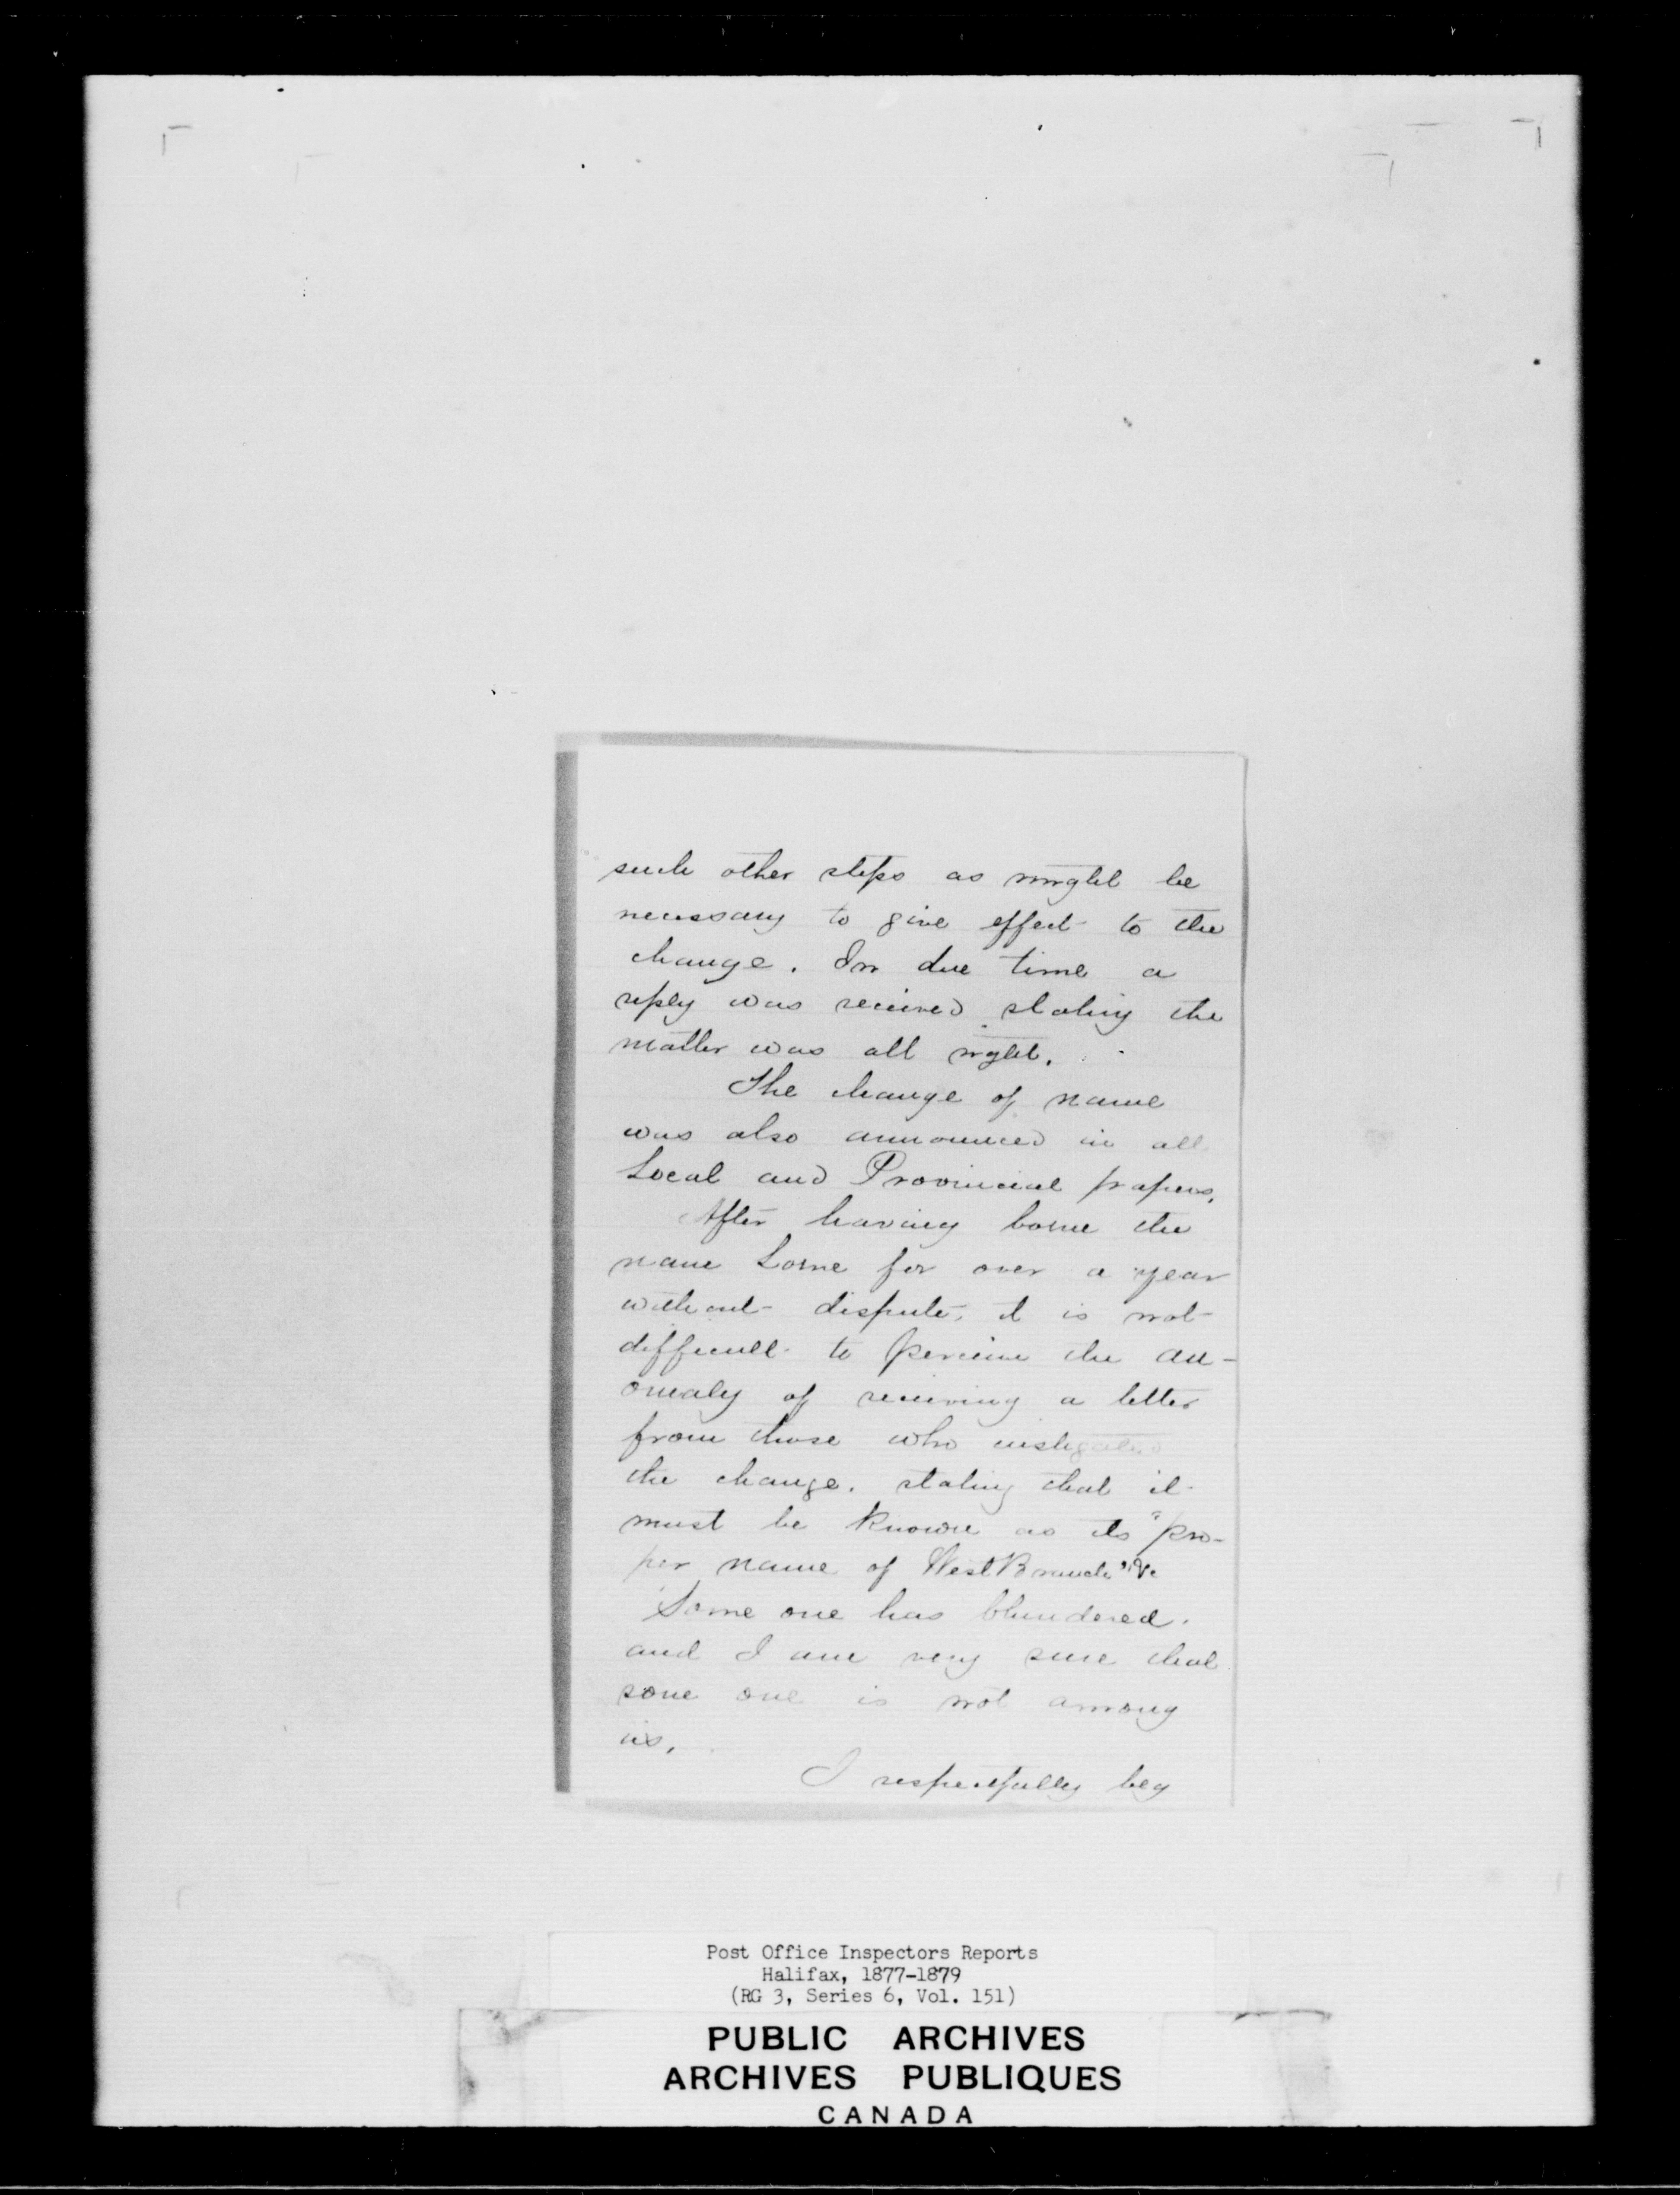 such other steps as might be
necessary to give effect to the
change. In due time a
reply was received stating the
matter was all right.
The change of name
was also announced in all
Local and Provincial papers.
After having borne the
name Lorne for over a year
without dispute, it is not
difficult to perceive the an-
omaly of receiving a letter
from those who instigated
the change, stating that it
must be known as its "pro-
per name of West Branch" &c
Some one has blundered,
and I am very sure that
some one is not among
us.
I respectfully beg
Post Office Inspectors Reports
Halifax, 1877-1879
(RG 3, Series 6, Vol. 151)
PUBLIC ARCHIVES
ARCHIVES PUBLIQUES
CANADA